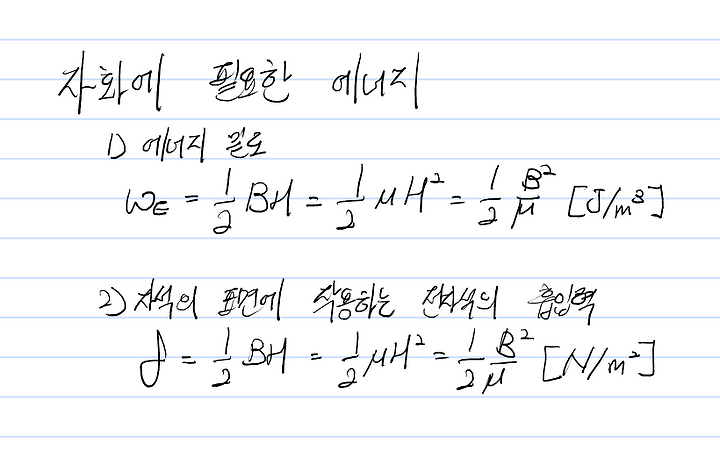 자화에 필요한 에너지
1) 에너지 밀도
ω_E = 1/2 BH = 1/2 μH² = 1/2 B²/μ [J/m³]
2) 자석의 표면에 작용하는 전자석의 흡입력
f = 1/2 BH = 1/2 μH² = 1/2 B²/μ [N/m²]